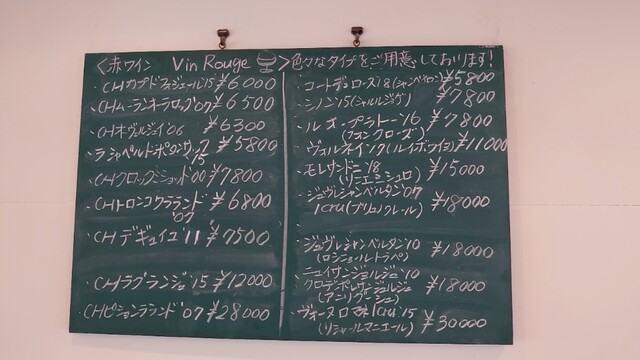 ＜赤ワイン Vin Rouge ＞色々なタイプをご用意しております!
・CHカプドフォジェール'15 ¥6000
・CHムーランオーラロック'07 ¥6500
・CHオーヴルジュイ'06 ¥6300
・ラシャペルドポタンサック
'15 ¥5800
・CHクロックミショット'00 ¥7800
・CHトロンコワラランド
'07 ¥6800
・CH デギュイユ'11 ¥7500
・CHラグランジュ'15 ¥12000
CHピションラランド'07 ¥28000
・コートデュローヌ'18(シャンベイロン) ¥5800
・シノン'15(シャルルジョゲ) ¥7800
・ル オー プラトー'16 ¥7800
(フォンクローズ)
・ヴォルネイ'17(ルイボワイヨ) ¥11000
・モレサンドニ'18 ¥15000
・ジュヴレシャンベルタン'07
1cru ¥18000
・ジュヴレシャンベルタン'10 ¥18000
(ロシニョールトラペ)
・ニュイサンジョルジュ'10
クロデポレサンジョルジュ ¥18000
(アンリグージュ)
・ヴォーヌロマネ1cru'15 ¥30000